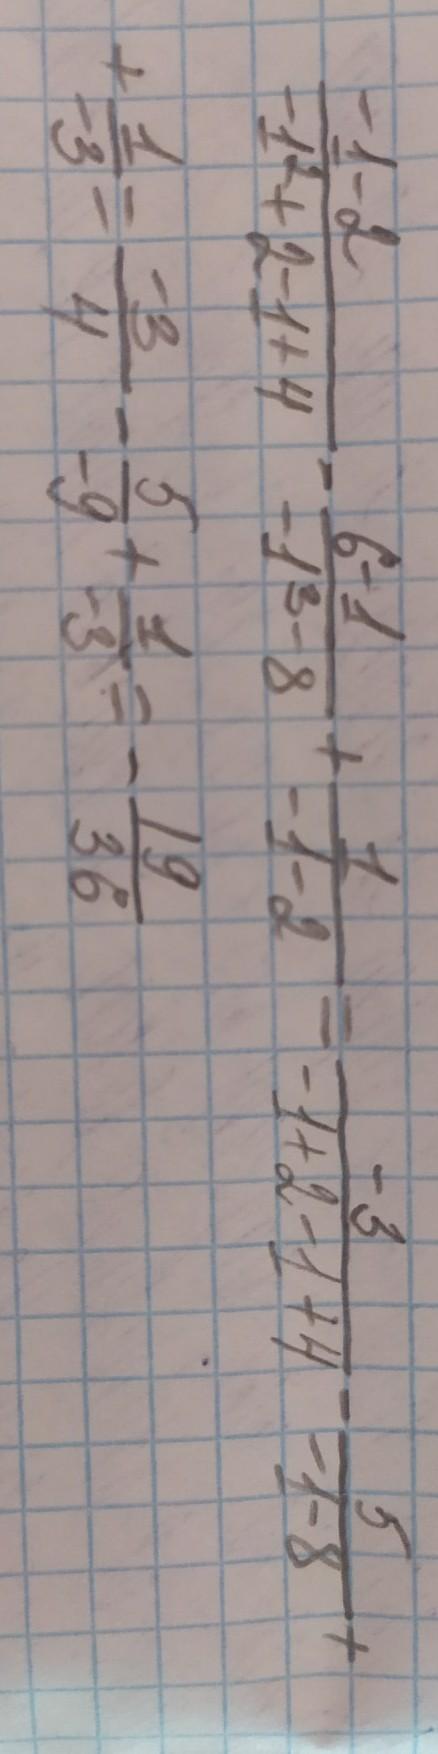 (-1-2)/(-1²+2-1+4) - (6-1)/(-1³-8) + 1/(-1-2) = -3/(-1+2-1+4) - 5/(-1-8) +
+ 1/-3 = -3/4 - 5/-9 + 1/-3 = - 19/36